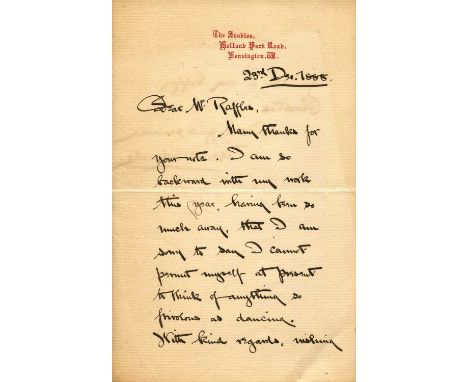 The Studios,
Holland Park Road,
Kensington. W.
23rd Dec. 1888.
Dear Mr Raffles,
Many thanks for
your note. I am so
backward with my work
this year, having been so
much away, that I am
sorry to say I cannot
permit myself at present
to think of anything so
frivolous as dancing.
With kind regards, wishing